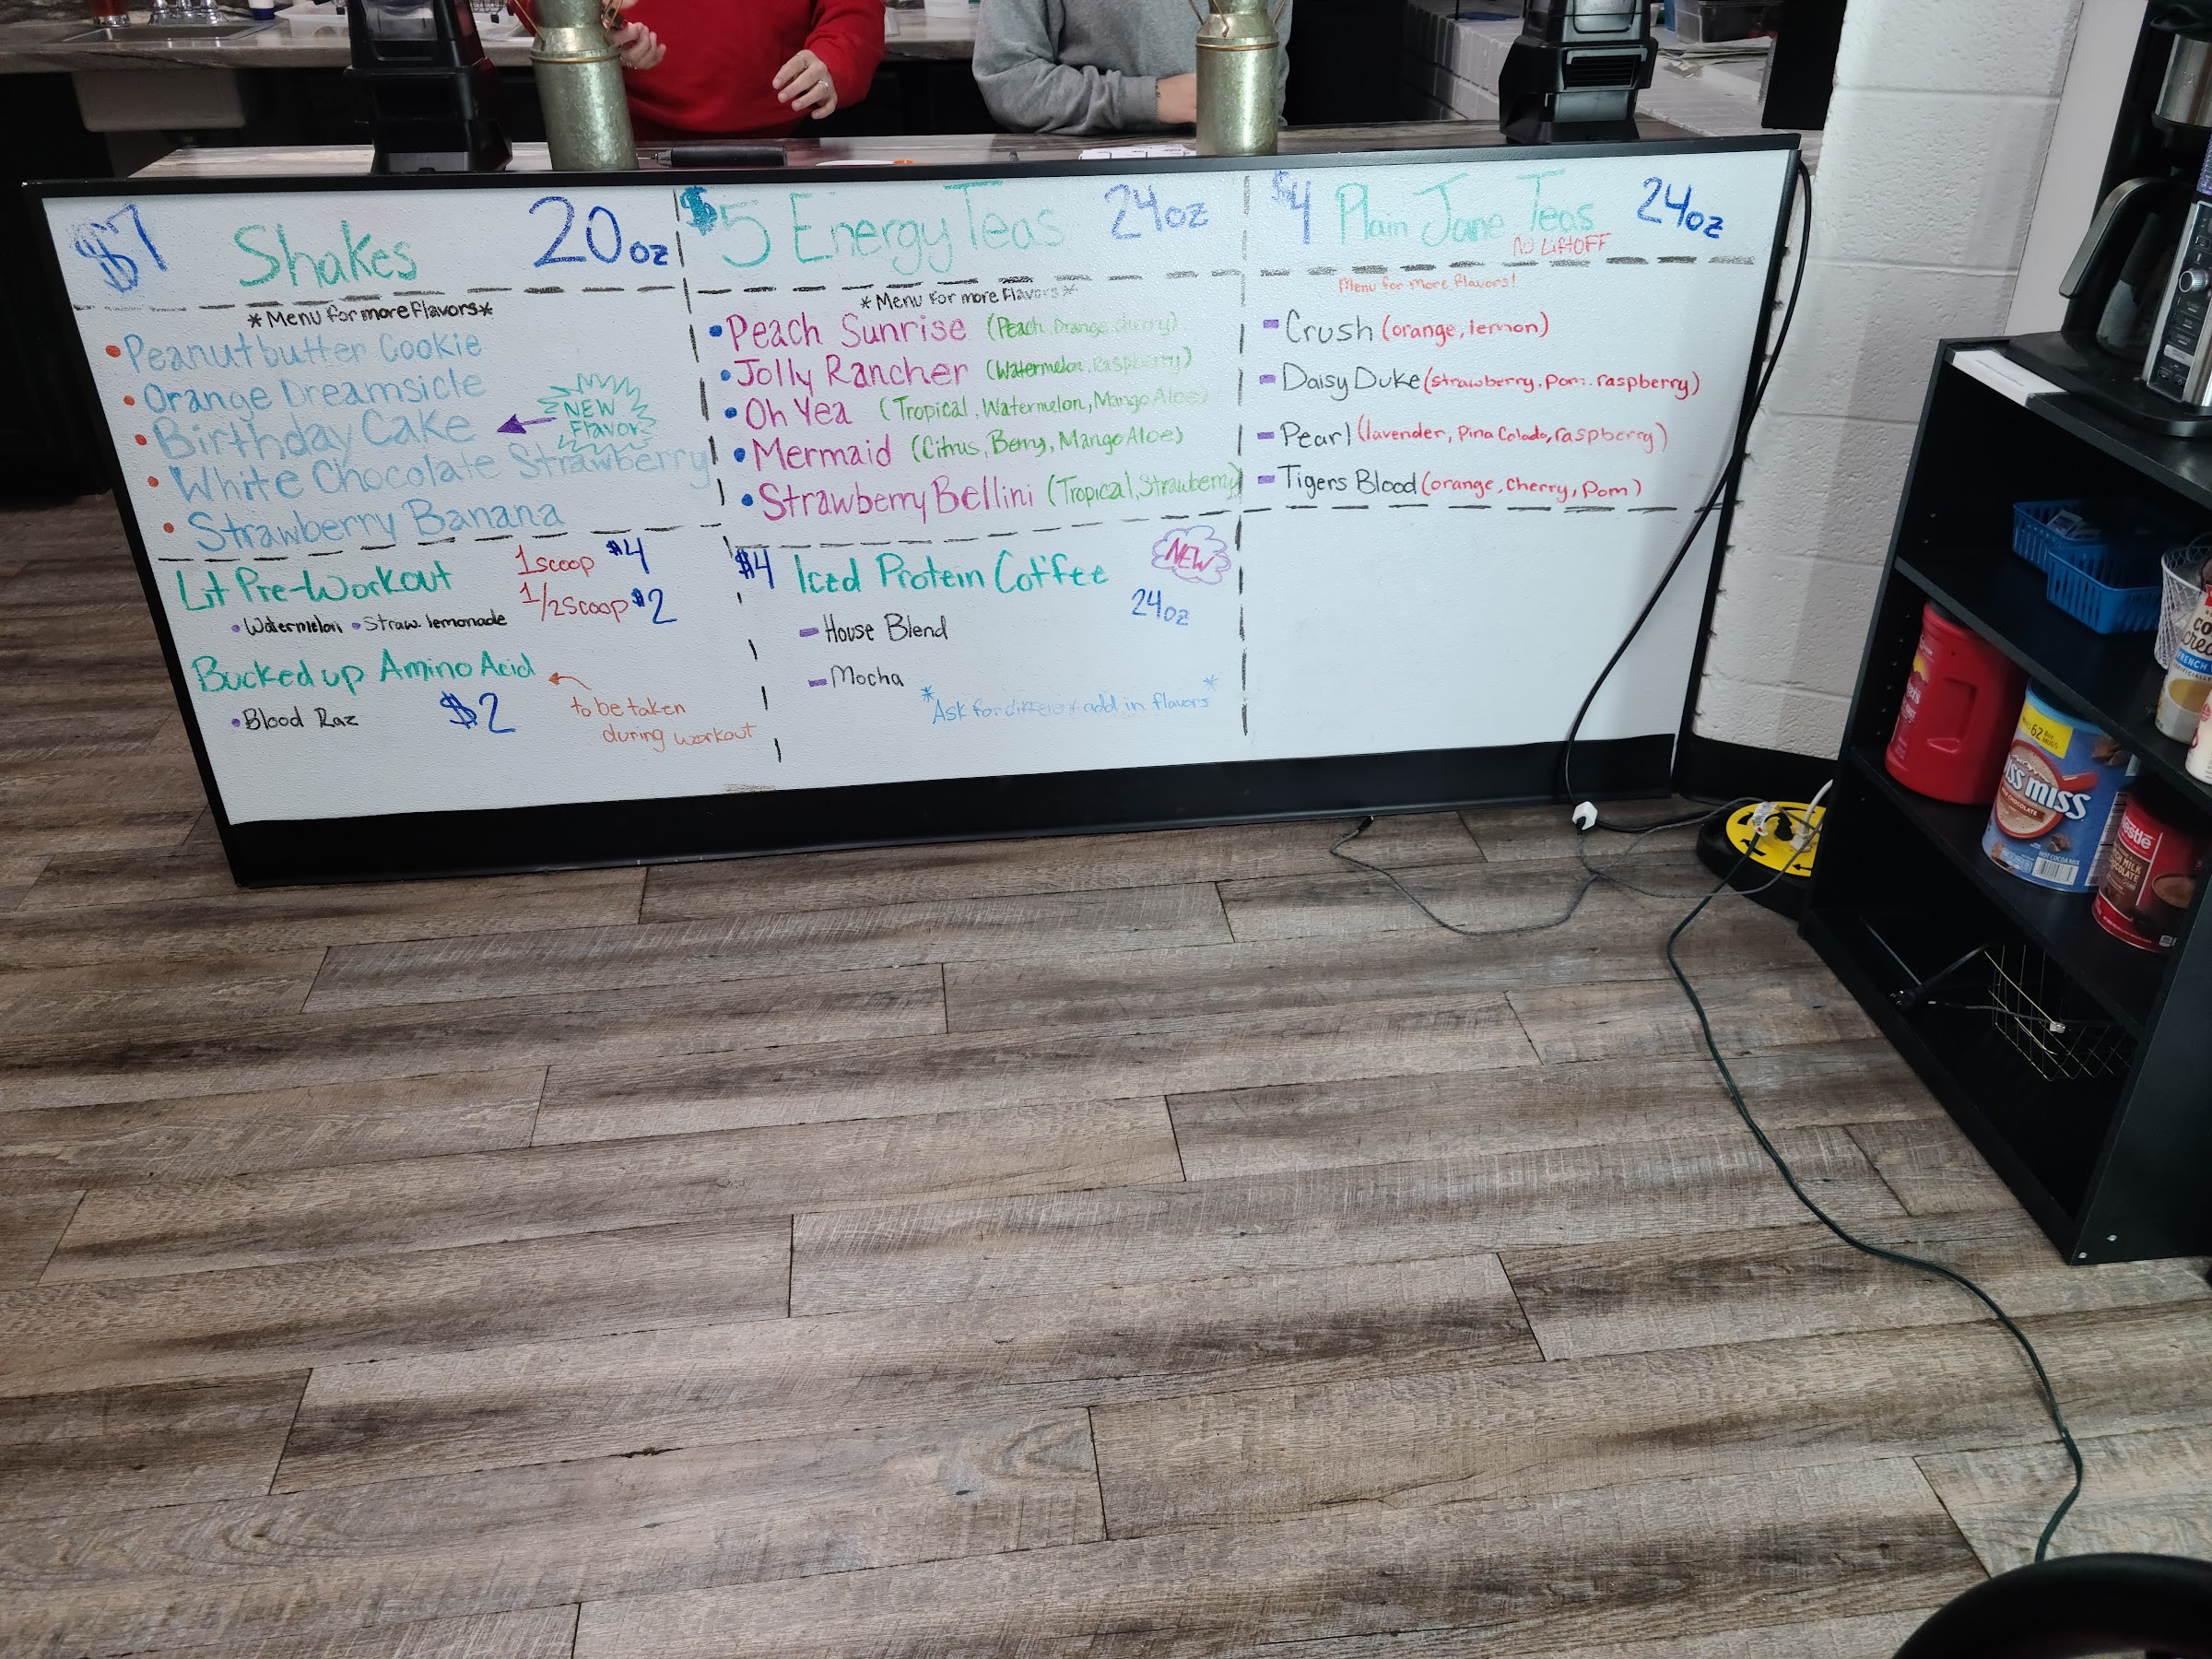 $7 Shakes 20oz
*Menu for more Flavors*
Peanutbutter Cookie
Orange Dreamsicle
Birthday Cake
NEW
Flavor
White Chocolate Strawberry
Strawberry Banana
Lit Pre-Workout
1 scoop $4
1/2 scoop $2
Watermelon • Straw. lemonade
Bucked up Amino Acid
to be taken
during workout
Blood Raz $2
$5 Energy Teas 24oz
*Menu for more Flavors*
Peach Sunrise (Peach, Orange, Cherry)
Jolly Rancher (Watermelon, Raspberry)
Oh Yea (Tropical, Watermelon, Mango Aloe)
Mermaid (Citrus, Berry, Mango Aloe)
Strawberry Bellini (Tropical, Strawberry)
$4 Iced Protein Coffee
NEW
24oz
House Blend
Mocha
*Ask for different add in flavors*
$4 Plain Jane Teas 24oz
NO LiftOFF
Menu for more flavors!
Crush (orange, lemon)
Daisy Duke (strawberry, Pom. raspberry)
Pearl (lavender, Pina Colada, raspberry)
Tigers Blood (orange, Cherry, Pom)
62
MUGS
ISS MISS
HOT COCOA MIX
Nestlé
MILK
CHOCOLATE
FRENCH